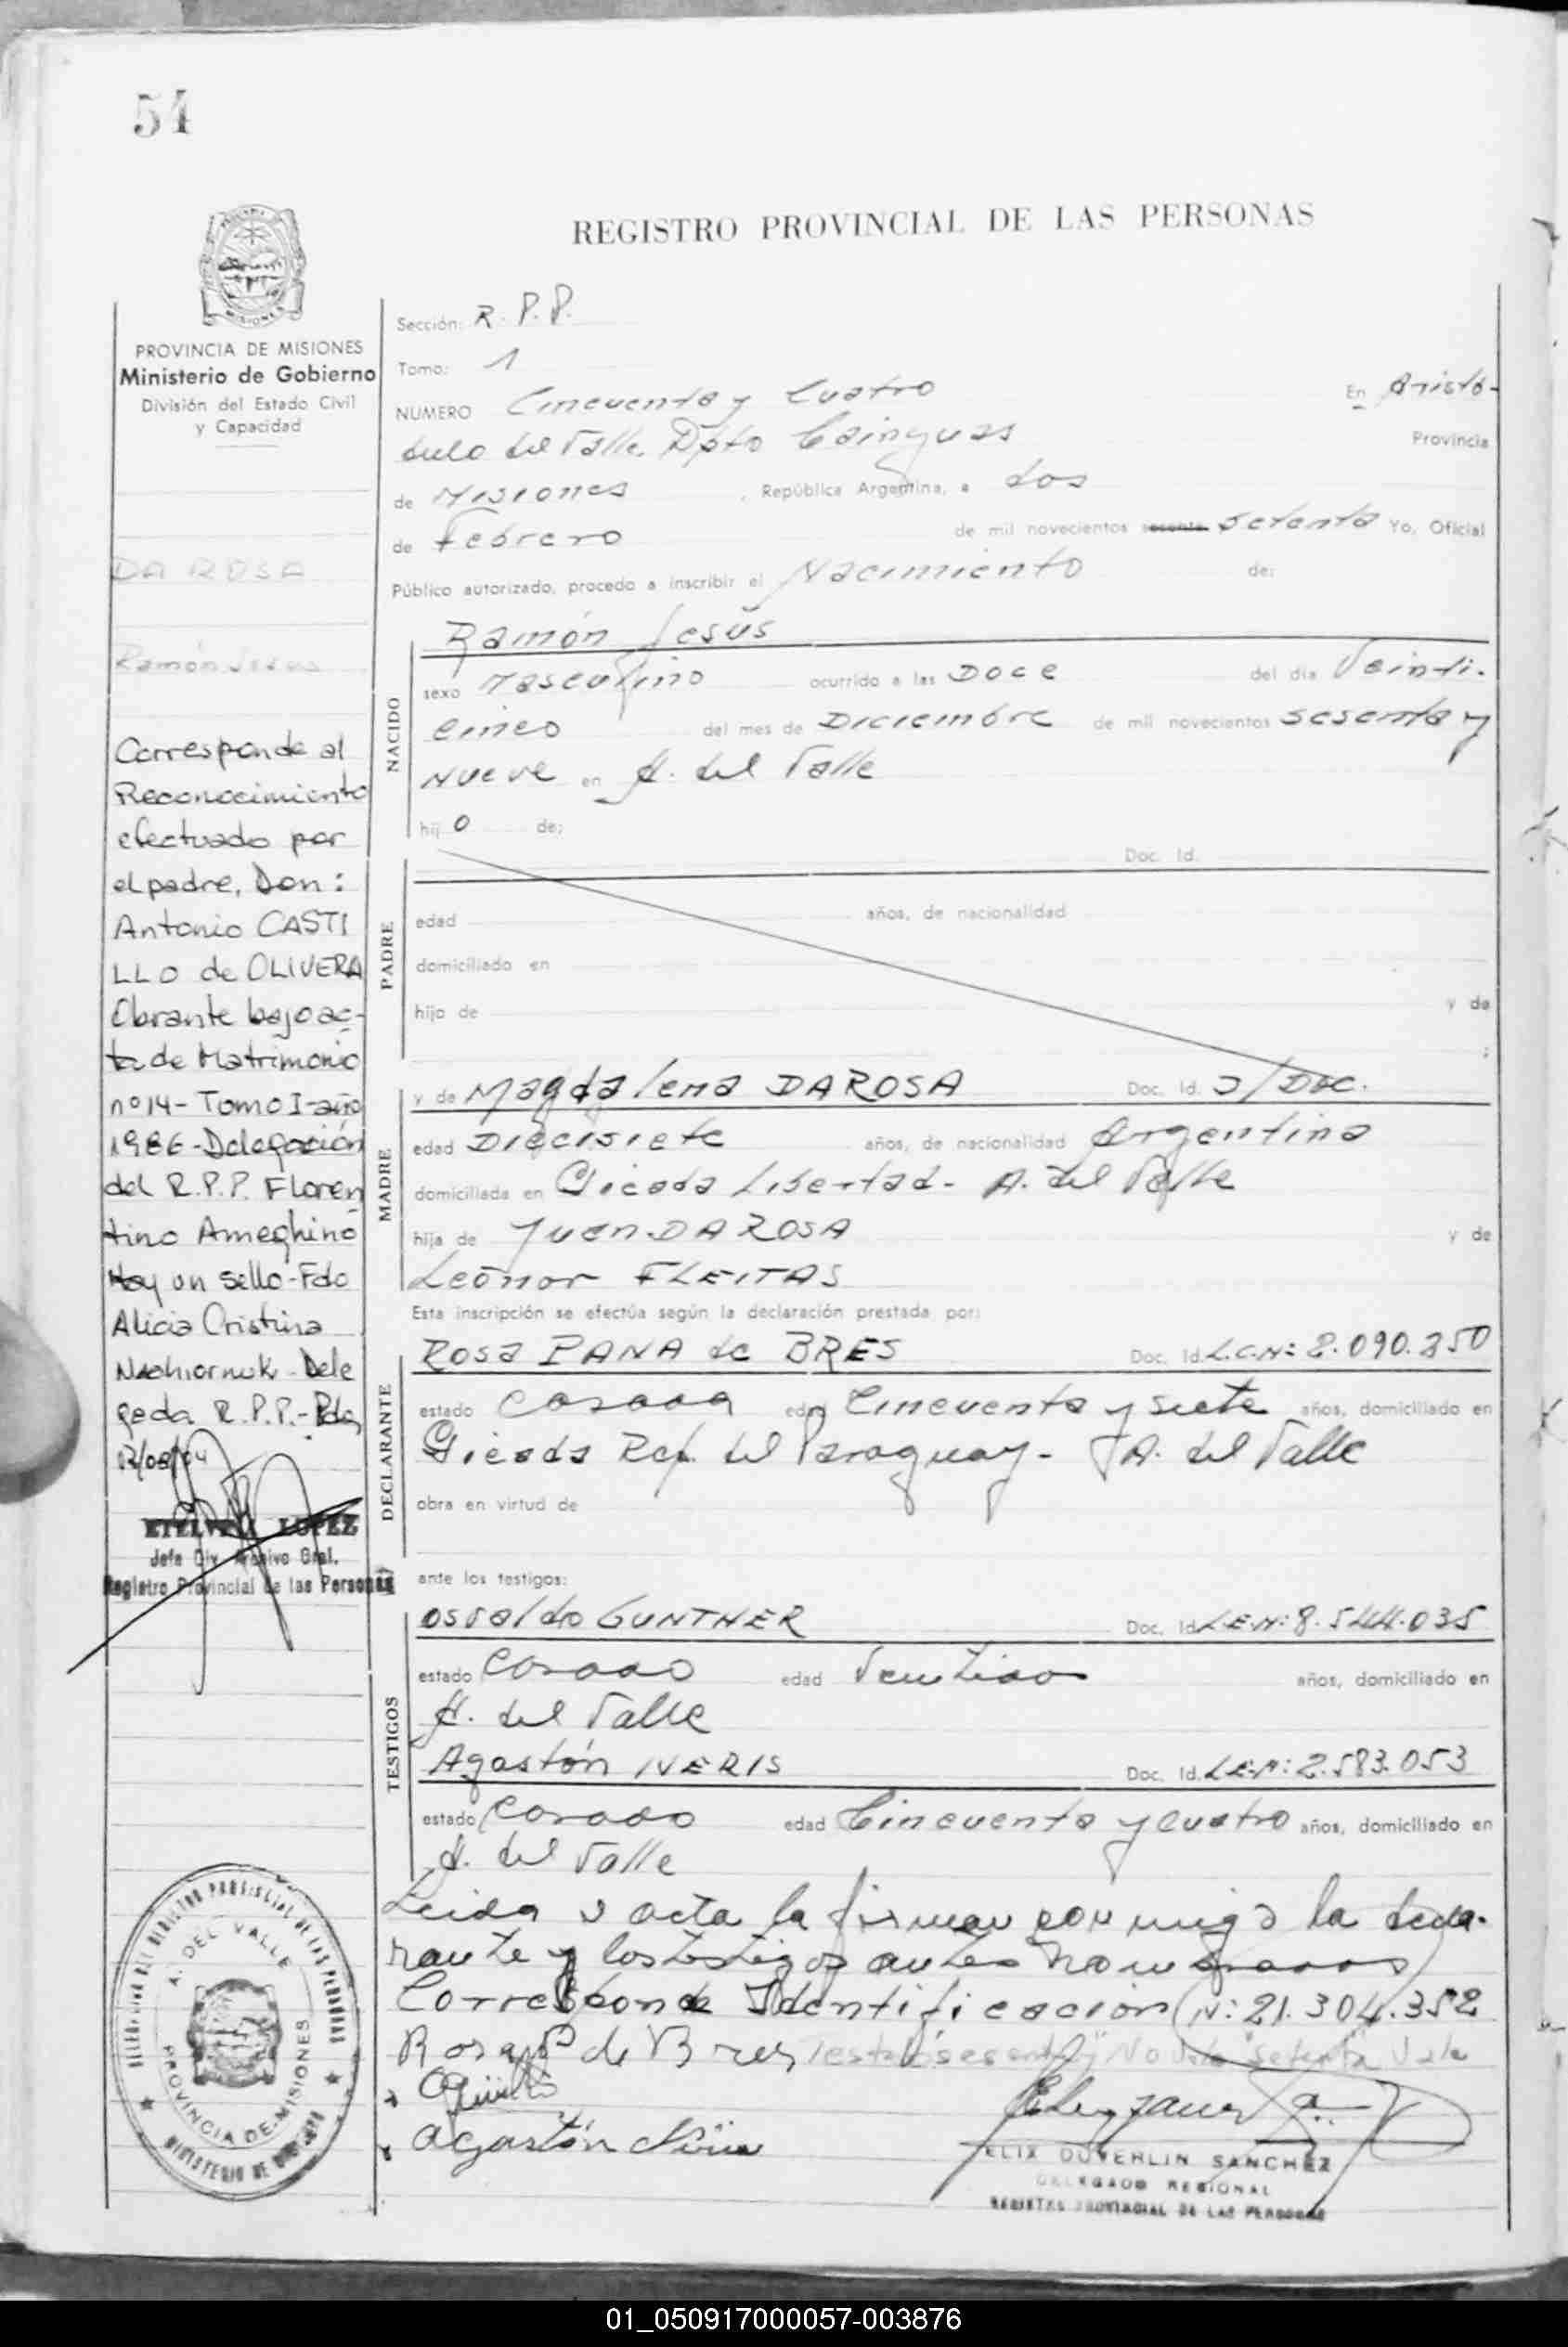 54
REGISTRO PROVINCIAL DE LAS PERSONAS
MISIONES
PROVINCIA DE MISIONES
Ministerio de Gobierno
División del Estado Civil
y Capacidad
DA ROSA
Ramón Jesus
Corresponde al
Reconocimiento
efectuado por
el padre, Don:
Antonio CASTI
LLO de OLIVERA
Obrante bajo ac-
ta de Matrimonio
nº 14 - Tomo I - año
1986 - Delegación
del R.P.P. Floren
tino Ameghino
Hay un sello - Fdo
Alicia Cristina
Dele
gada R.P.P. - Pdas
ETELVINA LOPEZ
Jefe Div. Archivo Gral.
Registro Provincial de las Personas
Sección: R.P.P.
Tomo: 1
NUMERO Cincuenta y Cuatro En Aristó-
bulo del Valle. Dpto Cainguas Provincia
de Misiones , República Argentina, a dos
de Febrero de mil novecientos sesenta Setenta Yo, Oficial
Público autorizado, procedo a inscribir el Nacimiento de:
NACIDO
Ramón Jesús
sexo Masculino ocurrido a las Doce del día Veinti-
cinco del mes de Diciembre de mil novecientos sesenta y
Nueve en A. del Valle
hijo de:
PADRE
Doc. Id.
edad años, de nacionalidad
domiciliado en
hijo de y de
;
MADRE
y de Magdalena DAROSA Doc. Id. S/Doc.
edad Diecisiete años, de nacionalidad Argentina
domiciliada en Picada Libertad - A. del Valle
hija de Juan DA ROSA y de
Leonor FLEITAS
Esta inscripción se efectúa según la declaración prestada por:
DECLARANTE
Rosa PANA de BRES Doc. Id. L.C.N: 2.090.350
estado Casada edad Cincuenta y siete años, domiciliado en
Picada Rep. del Paraguay - A. del Valle
obra en virtud de
ante los testigos:
TESTIGOS
Osvaldo GUNTHER Doc. Id. L.E.N: 8.544.035
estado Casado edad años, domiciliado en
A. del Valle
Agastón NERIS Doc. Id. L.E.N: 2.583.053
estado Casado edad Cincuenta y cuatro años, domiciliado en
A. del Valle
Leida el acta la firman conmigo la decla-
rante y los testigos antes nombrados
Corresponde Identificación N: 21.304.352
Rosa P de Bres Testado "sesenta" No Vale "setenta" Vale
Agastón Neris
ELIX DUVERLIN SANCHEZ
DELEGADO REGIONAL
REGISTRO PROVINCIAL DE LAS PERSONAS
DELEGACION DEL REGISTRO PROVINCIAL DE LAS PERSONAS
A. DEL VALLE
PROVINCIA DE MISIONES
MINISTERIO DE GOBIERNO
01_050917000057-003876